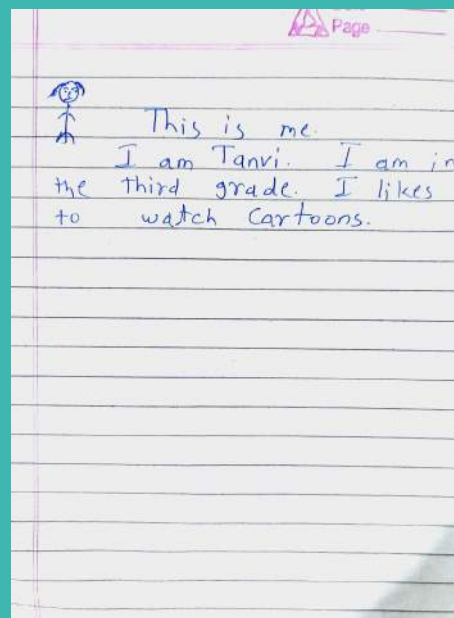 Page
This is me.
I am Tanvi. I am in
the third grade. I likes
to watch Cartoons.